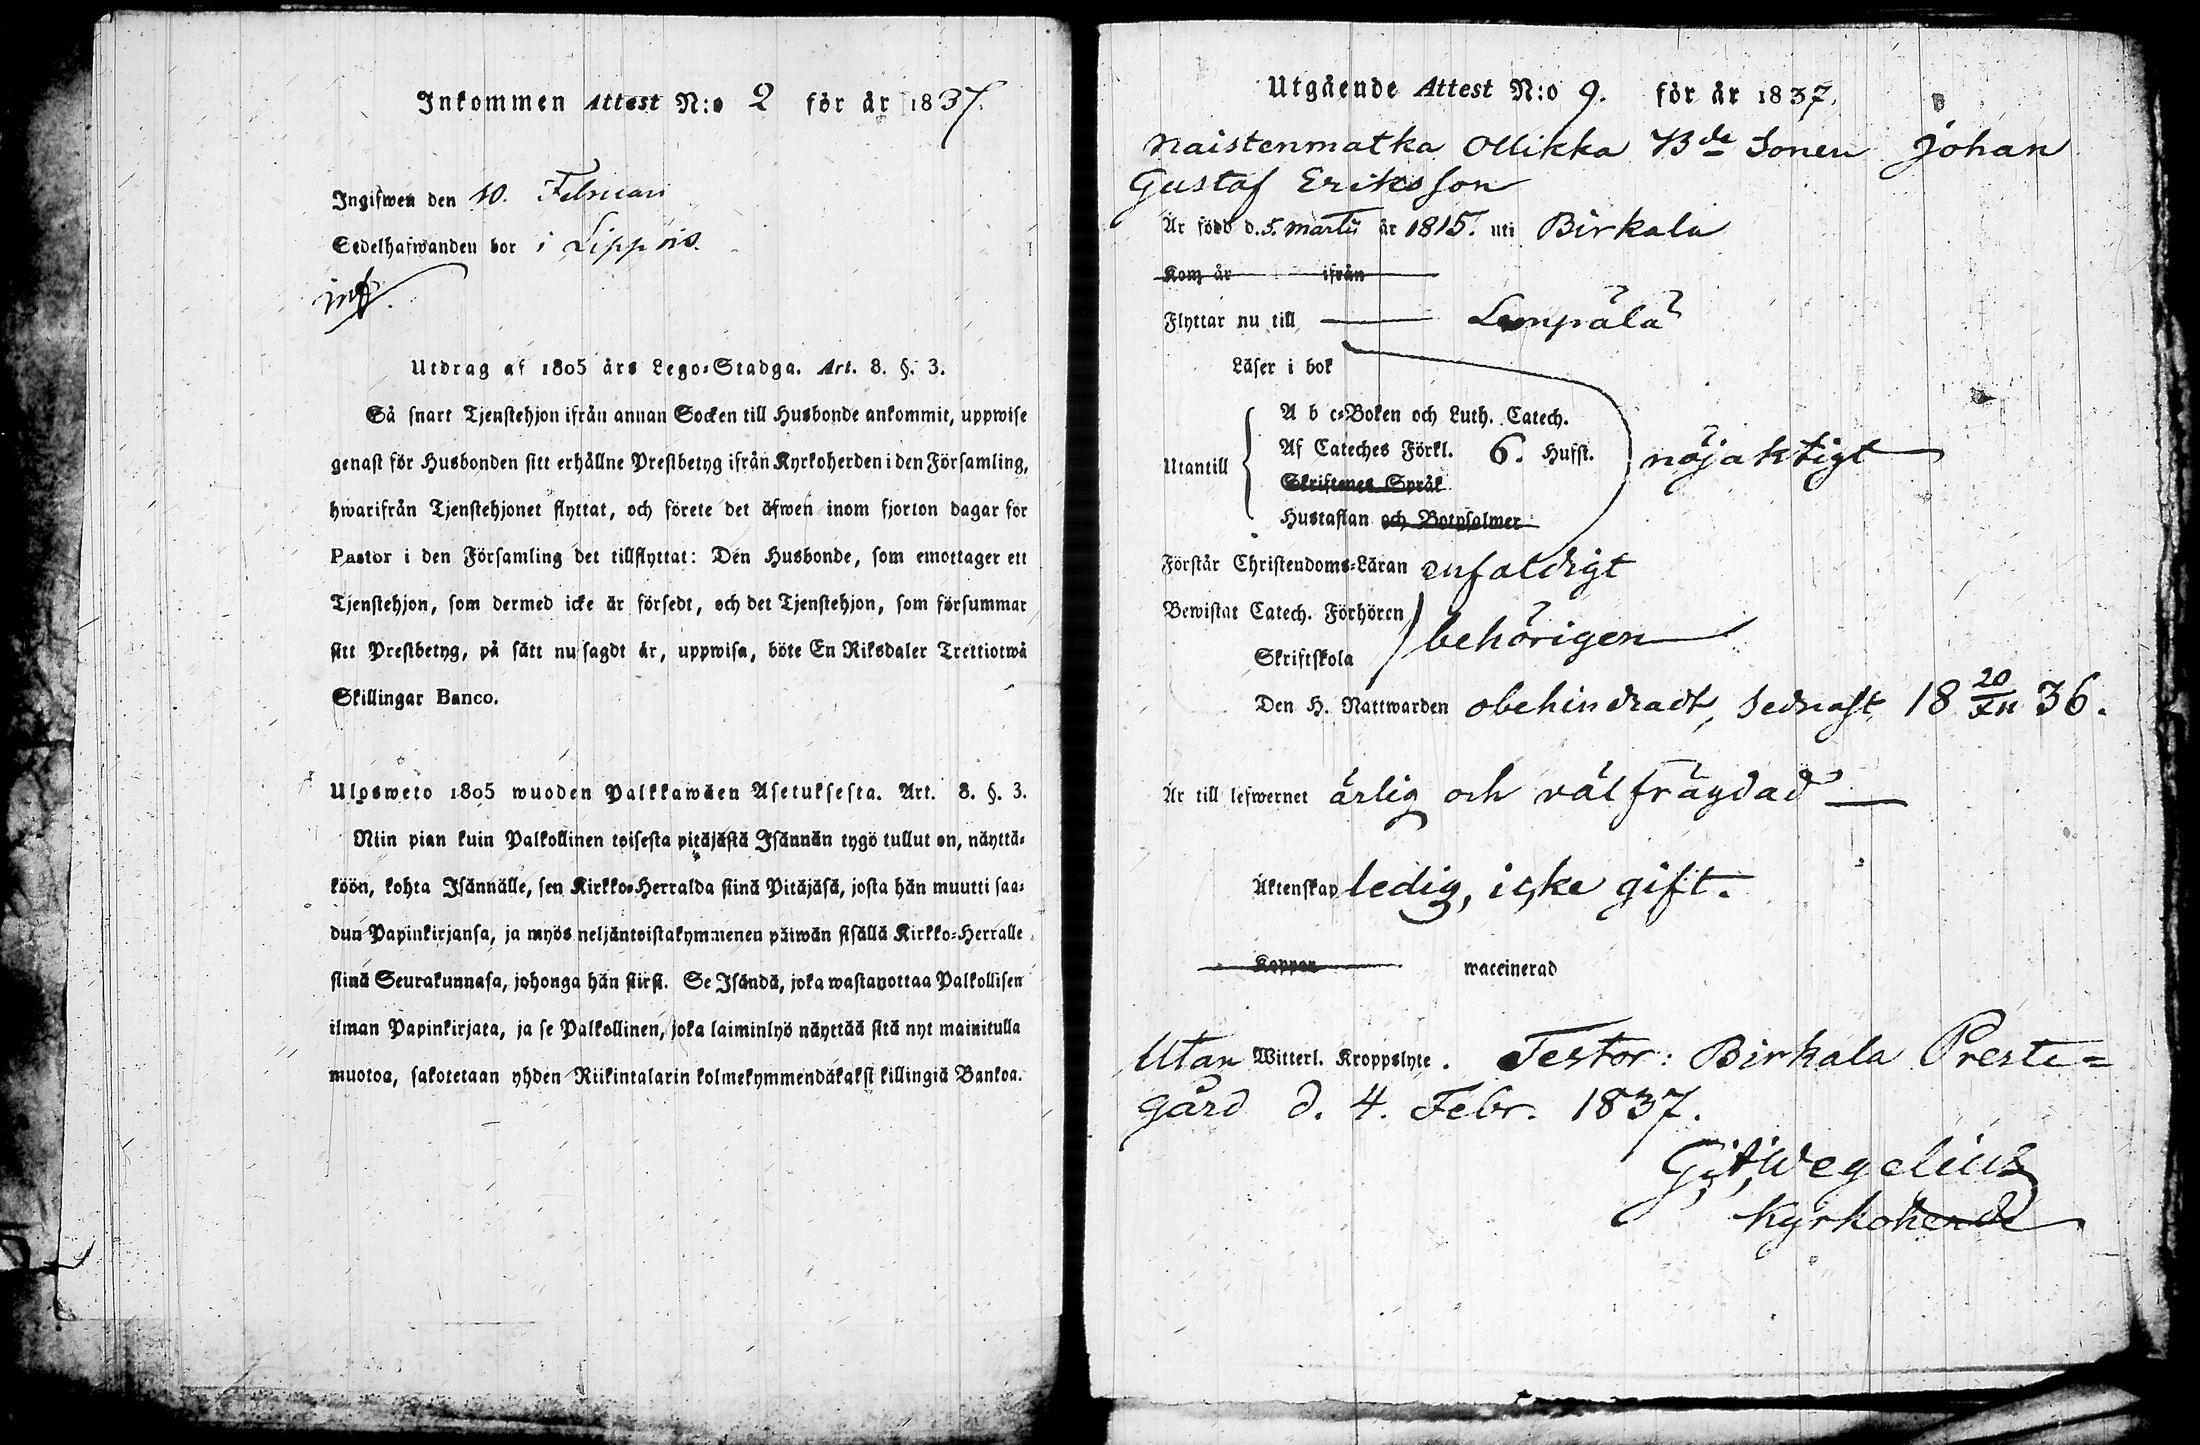 Inkommen Attest N:o 2 för år 1837.
Ingifwen den 10. Februari
Sedelhafwanden bor i Lippois
inf.
Utdrag af 1805 års Lego-Stadga. Art. 8. §. 3.
Så snart Tjenstehjon ifrån annan Socken till Husbonde ankommit, uppwise
genast för Husbonden sitt erhållne Prestbetyg ifrån Kyrkoherden i den Församling,
hwarifrån Tjenstehjonet flyttat, och förete det äfwen inom fjorton dagar för
Pastor i den Församling det tillflyttat: Den Husbonde, som emottager ett
Tjenstehjon, som dermed icke är försedt, och det Tjenstehjon, som försummar
sitt Prestbetyg, på sätt nu sagdt är, uppwisa, böte En Riksdaler Trettiotwå
Skillingar Banco.
Ulosweto 1805 wuoden Palkkawäen Asetuksesta. Art. 8. §. 3.
Niin pian kuin Palkollinen toisesta pitäjästä Isännän tygö tullut on, näyttä-
köön, kohta Isännälle, sen Kirkko-Herralda siinä Pitäjäsä, josta hän muutti saa-
dun Papinkirjansa, ja myös neljäntoistakymmenen päiwän sisällä Kirkko-Herralle
siinä Seurakunnasa, johonga hän siirsi. Se Isändä, joka wastanottaa Palkollisen
ilman Papinkirjata, ja se Palkollinen, joka laiminlyö näyttää sitä nyt mainitulla
muotoa, sakotetaan yhden Riikintalarin kolmekymmendäkaksi killingiä Bankoa.
Utgående Attest N:o 9. för år 1837.
Naistenmatka Ollikka Bde Sonen Johan
Gustaf Eriksson
Är född d. 5. Martii år 1815. uti Birkala
Kom år ifrån
Flyttar nu till Lempälä
Läser i bok
A b c-Boken och Luth. Catech.
Af Cateches Förkl. 6. Hufst.
Utantill nöjaktigt
Skriftenes Språk
Hustaflan och Botpsalmer
Förstår Christendoms-Läran enfaldigt
Bewistat Catech. Förhören
behörigen
Skriftskola
Den H. Nattwarden obehindradt, sednast 18 20/XII 36.
Är till lefwernet ärlig och välfrägdad
Äktenskap ledig, icke gift.
Koppor waccinerad
Utan Witterl. Kroppslyte. Testor: Birkala Preste-
gård d. 4. Febr. 1837.
G: A: Wegelius
Kyrkoherde